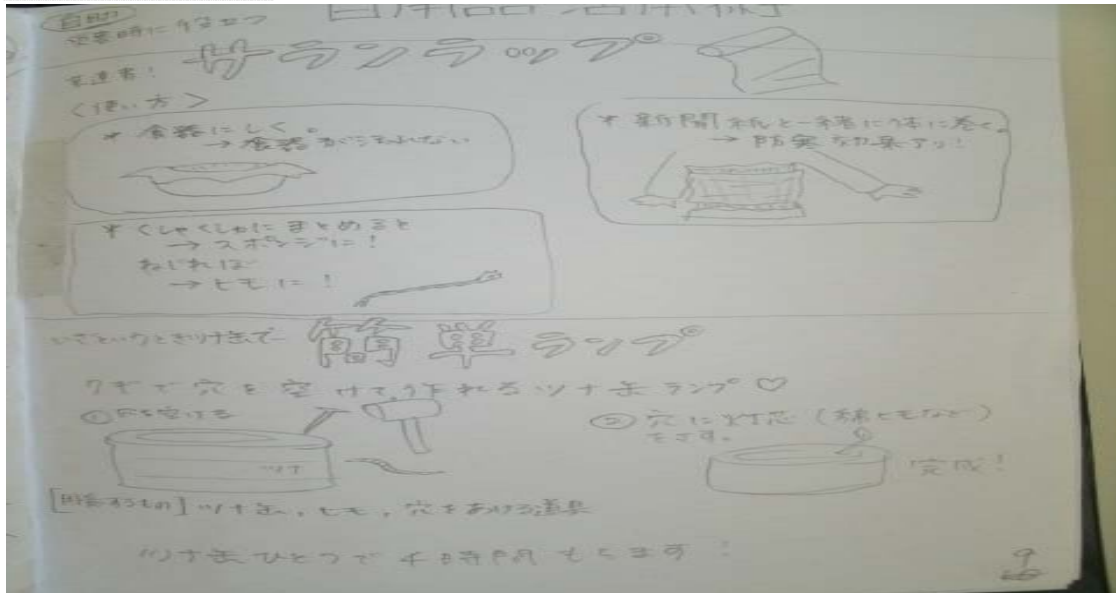 自助
災害時に役立つ
日用品活用術
サランラップ
<使い方>
* 食器にしく。
→食器がよごれない
* 新聞紙と一緒に体に巻く。
→防寒効果アリ!
* くしゃくしゃにまとめると
→スポンジに!
ねじれば
→ヒモに!
いざというときツナ缶で
簡単ランプ
クギで穴を空けて作れるツナ缶ランプ♡
① 穴を空ける
ツナ
② 穴に灯芯(綿ヒモなど)
をさす。
完成!
[用意するもの] ツナ缶、ヒモ、穴をあける道具
ツナ缶ひとつで 時間もちます!
9